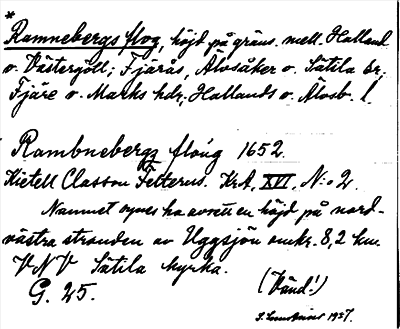 *
Ramnebergs flog, höjd på gräns. mell. Halland
o. Västergötl; Fjärås, Älvsåker o. Sätila sr;
Fjäre o. Marks hdr; Hallands o. Älvsb. l.
Rambnebergz floug 1652.
Kietell Classon Felterus. KrA. XVI. N:o 2.
Namnet synes ha avsett en höjd på nord-
västra stranden av Uggsjön omkr. 8,2 km.
VNV Sätila kyrka.
G. 25.
(Vänd!)
1927.